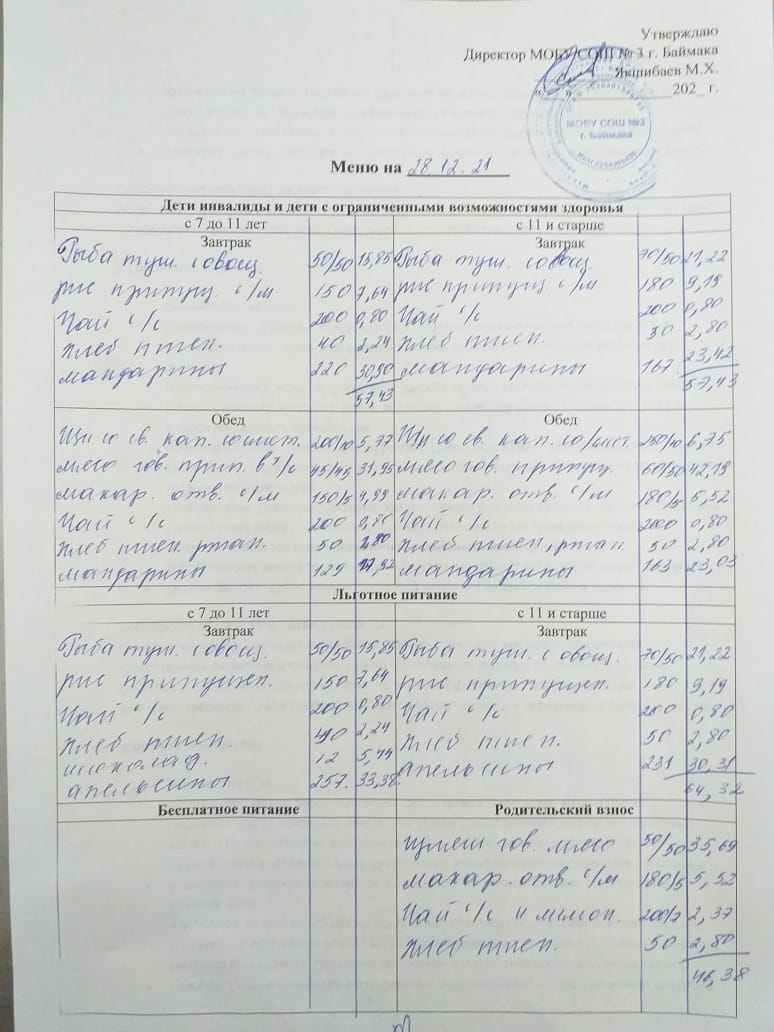 Утверждаю
Директор МОБУ СОШ № 3 г. Баймака
Якшибаев М.Х.
202_ г.
МОБУ СОШ №3
г. Баймака
Меню на 28.12.21
Дети инвалиды и дети с ограниченными возможностями здоровья
с 7 до 11 лет с 11 и старше
Завтрак Завтрак
Рыба туш. с овощ. 50/50 15,85 Рыба туш. с овощ. 70/50 21,22
рис припущ. с/м 150 7,64 рис припущ. с/м 180 9,19
Чай с/с 200 0,80 Чай с/с 200 0,80
Хлеб пшен. 40 2,24 Хлеб пшен. 50 2,80
мандарины 220 30,90 мандарины 167 23,42
57,43 57,43
Обед Обед
Щи со св. кап. со смет. 200/10 5,77 Щи со св. кап. со/смет. 250/10 6,75
мясо гов. прип. в т/с 45/45 31,95 мясо гов. припущ. 60/50 42,19
макар. отв. с/м 150/5 4,99 макар. отв. с/м 180/5 5,52
Чай с/с 200 0,80 Чай с/с 200 0,80
Хлеб пшен. ржан. 50 2,80 Хлеб пшен, ржан. 50 2,80
мандарины 129 мандарины 163 23,03
Льготное питание
с 7 до 11 лет с 11 и старше
Завтрак Завтрак
Рыба туш. с овощ. 50/50 15,85 Рыба туш. с овощ. 70/50 21,22
рис припущен. 150 7,64 рис припущен. 180 9,19
Чай с/с 200 0,80 Чай с/с 200 0,80
Хлеб пшен. 40 2,24 Хлеб пшен. 50 2,80
шоколад. 12 5,44 апельсины 231 30,31
апельсины 257. 33,38 64,32
Бесплатное питание Родительский взнос
гуляш гов. мясо 50/50 35,69
макар. отв. с/м 180/5 5,52
Чай с/с и лимон. 200/7 2,37
Хлеб пшен. 50 2,80
46,38